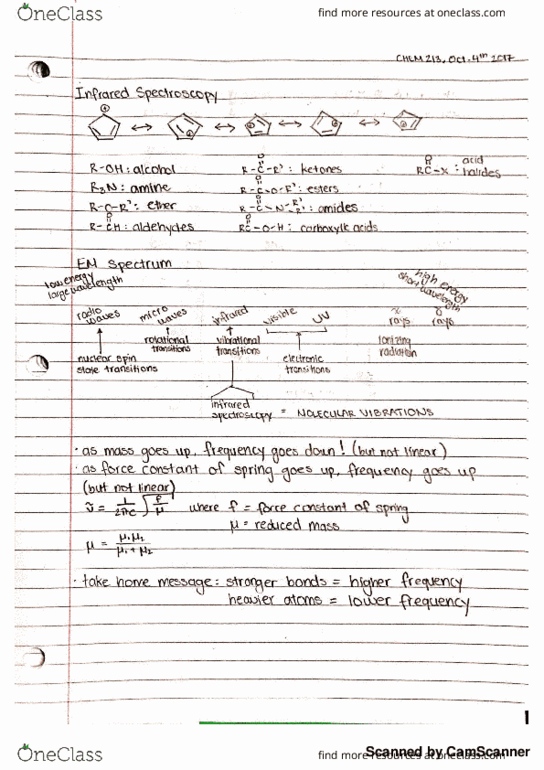 OneClass
find more resources at oneclass.com
CHEM 213, Oct. 4th 2017
Infrared Spectroscopy
⊕ ↔ ⊕ ↔ ⊕ ↔ ⊕ ↔ ⊕
R-OH: alcohol
R-C-R': ketones
O
RC-X: acid halides
O
R3N: amine
R-C-O-R': esters
O
R-O-R': ether
R-C-N-R' R": amides
O
R-CH: aldehydes
O
RC-O-H: carboxylic acids
O
EM Spectrum
low energy
large wavelength
high energy
short wavelength
radio waves
micro waves
infrared
visible
UV
x rays
γ rays
nuclear spin state transitions
rotational transitions
vibrational transitions
electronic transitions
ionizing radiation
infrared spectroscopy = MOLECULAR VIBRATIONS
· as mass goes up, frequency goes down! (but not linear)
· as force constant of spring goes up, frequency goes up
(but not linear)
ṽ = 1/2πc √f/μ where f = force constant of spring
μ = reduced mass
μ = μ1μ2/μ1+μ2
· take home message: stronger bonds = higher frequency
heavier atoms = lower frequency
1
OneClass
find more resources at oneclass.com
Scanned by CamScanner